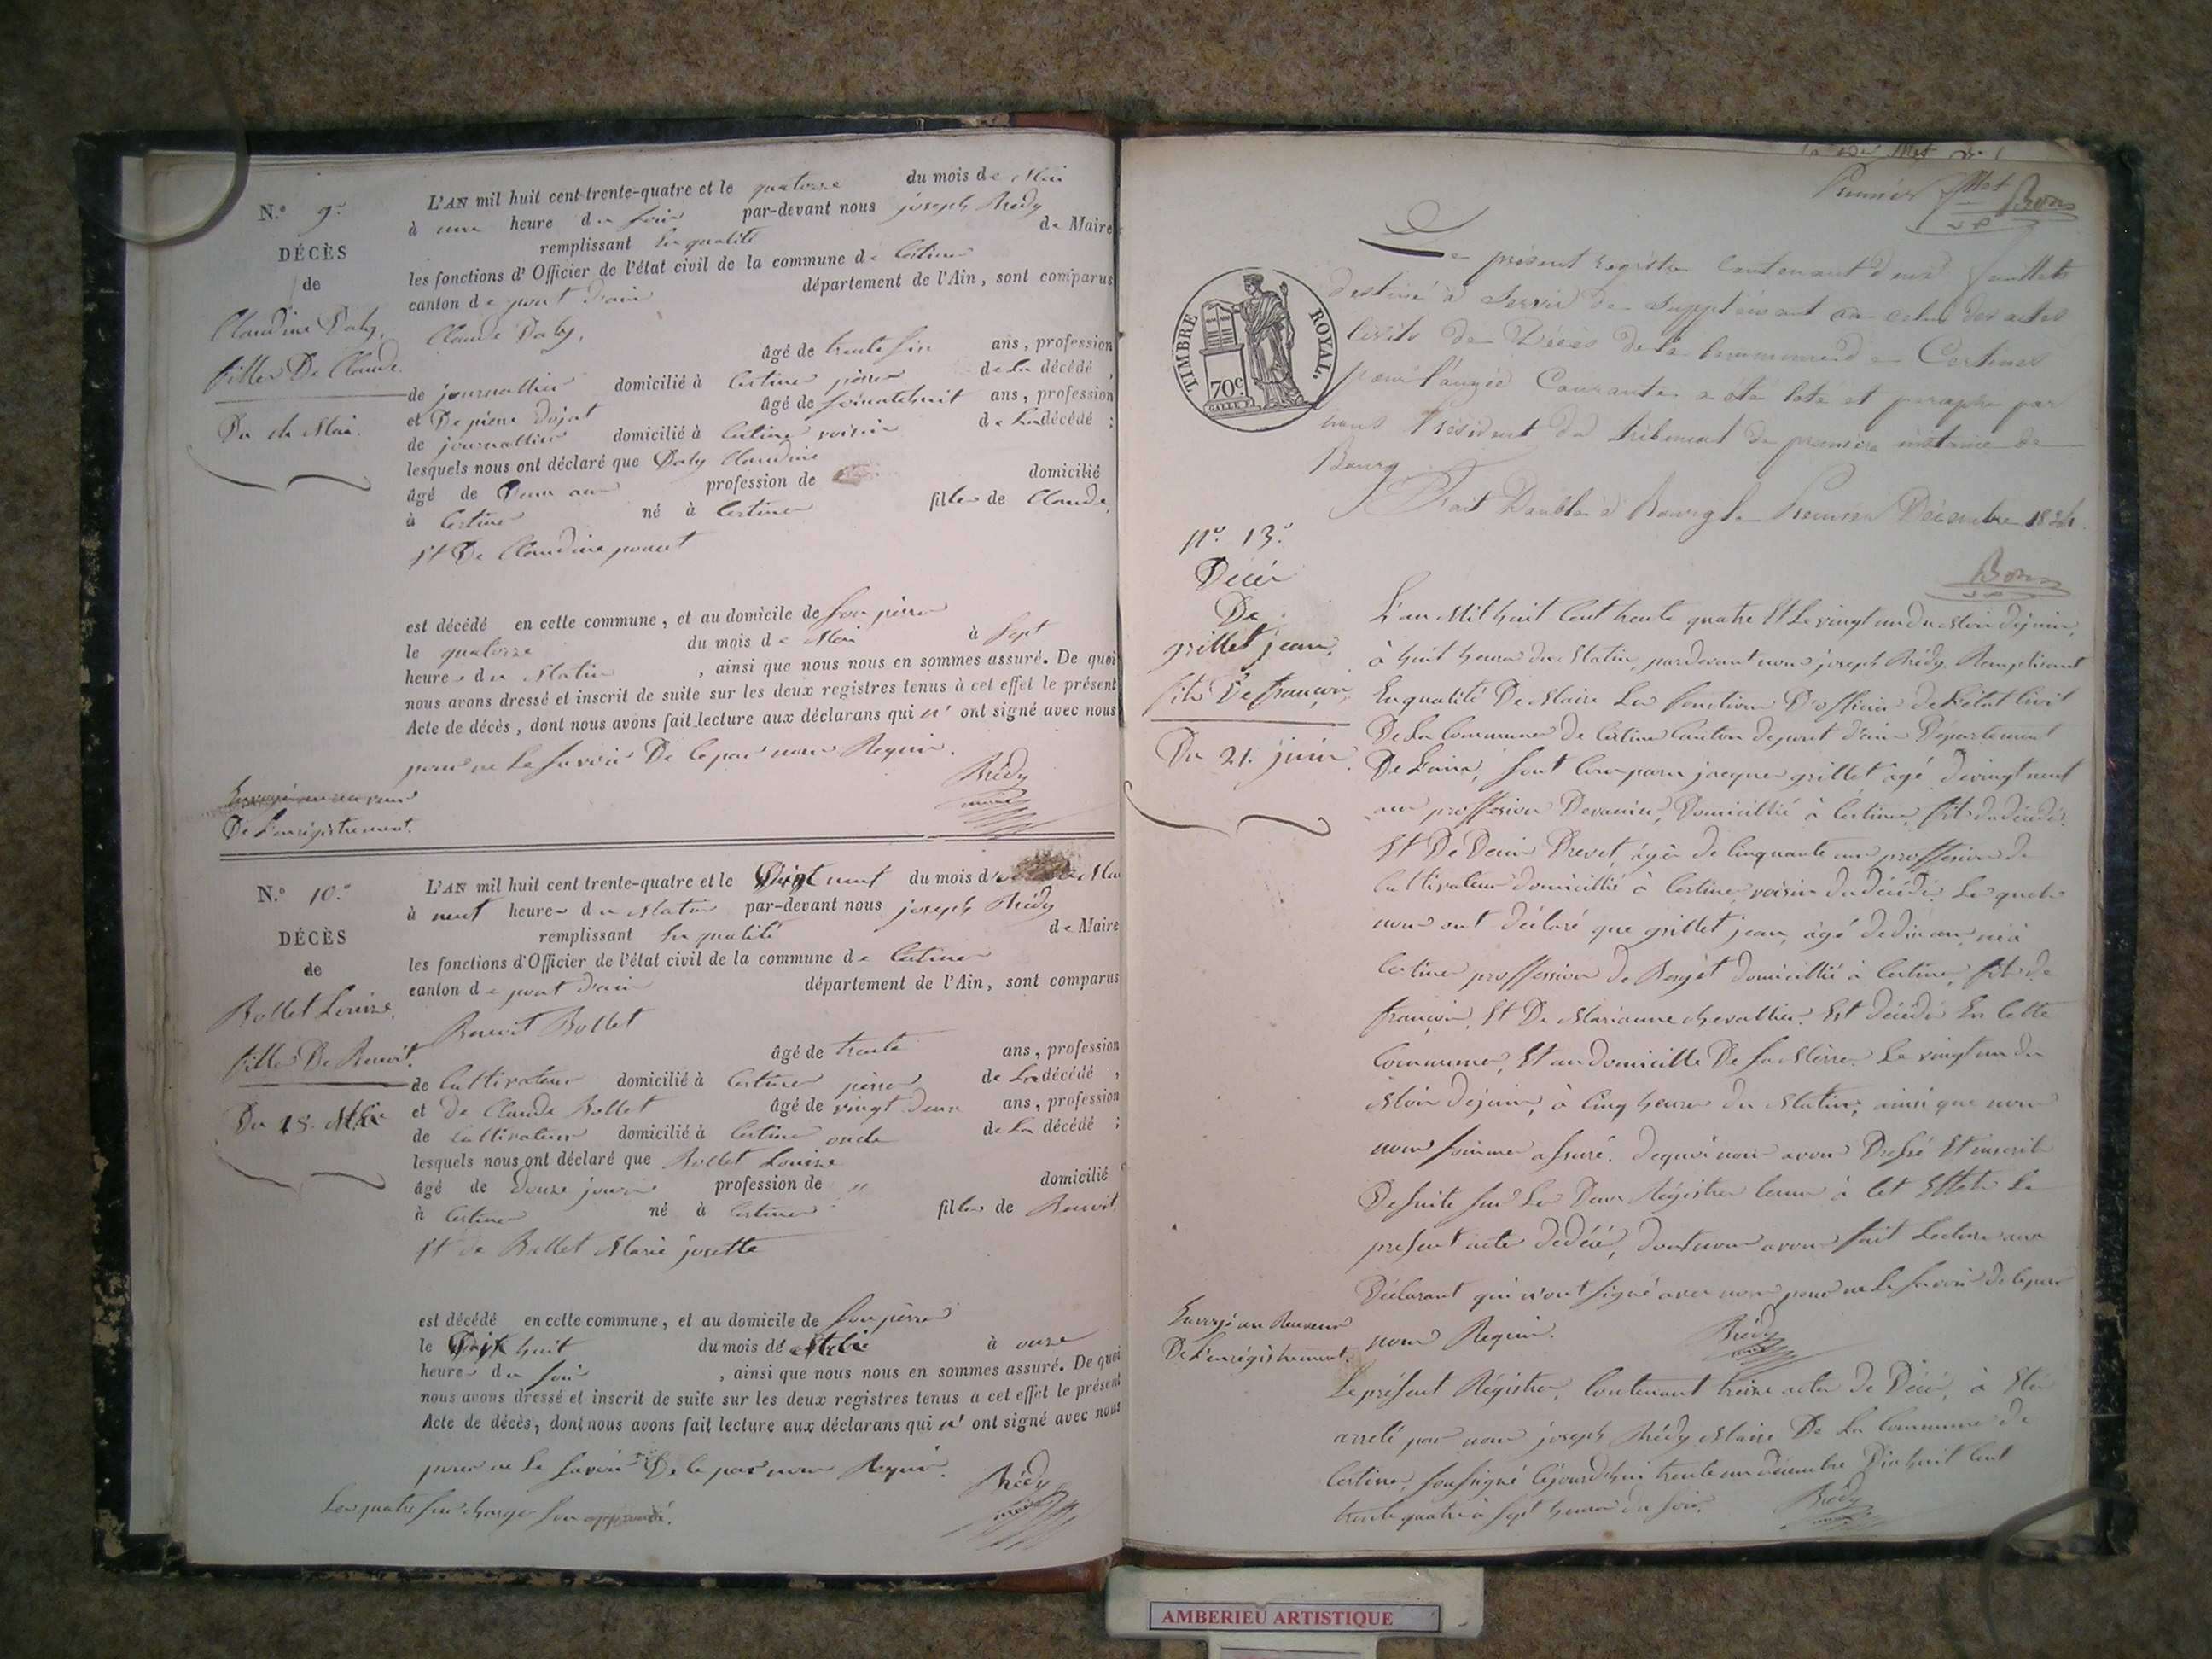 N.º 9.º
DÉCÈS
de
Claudine Daby,
fille De Claude.
Du 14 Mai.
L'AN mil huit cent-trente-quatre et le quatorze du mois de Mai
à une heure du soir par-devant nous joseph Brédy
remplissant En qualité de Maire
les fonctions d'Officier de l'état civil de la commune de Certines
canton de pont d'ain département de l'Ain, sont comparus
Claude Daby,
âgé de trente six ans, profession
de journallier domicilié à Certines père de La décédé,
et De pierre âgé de soixantehuit ans, profession
de journallier domicilié à Certines voisin de La décédé ;
lesquels nous ont déclaré que Daby Claudine
âgé de Deux ans profession de domicilié
à Certines né à Certines fille de Claude,
Et De Claudine poncet
est décédé en cette commune, et au domicile de son père
le quatorze du mois de Mai à Sept
heures du Matin, ainsi que nous nous en sommes assuré. De quoi
nous avons dressé et inscrit de suite sur les deux registres tenus à cet effet le présent
Acte de décès, dont nous avons fait lecture aux déclarans qui n' ont signé avec nous
pour ne Le savoir De ce par nous Requis.
Brédy
maire
De L'enrégistrement.
N.º 10.º
DÉCÈS
de
Bollet Louise,
fille De Benoit.
Du 18. Mai
L'AN mil huit cent trente-quatre et le du mois de Mai
à neuf heures du Matin par-devant nous joseph Brédy
remplissant En qualité de Maire
les fonctions d'Officier de l'état civil de la commune de Certines
canton de pont d'ain département de l'Ain, sont comparus
Benoit Bollet
âgé de trente ans, profession
de Cultivateur domicilié à Certines père de La décédé,
et de Claude Bollet âgé de vingt deux ans, profession
de Cultivateur domicilié à Certines oncle de La décédé ;
lesquels nous ont déclaré que Bollet Louise
âgé de douze jours profession de " domicilié
à Certines né à Certines fille de Benoit,
Et de Bollet Marie josette
est décédé en cette commune, et au domicile de son père
le Dix huit du mois de Mai à onze
heures du soir, ainsi que nous nous en sommes assuré. De quoi
nous avons dressé et inscrit de suite sur les deux registres tenus à cet effet le présent
Acte de décès, dont nous avons fait lecture aux déclarans qui n' ont signé avec nous
pour ne Le savoir De ce par nous Requis.
Brédy
maire
Les quatre sur charge son approuvé.
Premier
TIMBRE ROYAL.
70c.
GALLE F.
Le présent registre contenant deux feuillets
destiné à servir de supplément à celui des actes
civils de Décès de la commune de Certines
pour l'année Courante a été coté et paraphé par
nous Président du tribunal de première instance de
Bourg
Fait Double à Bourg le Premier Décembre 1834.
nº. 13.º
Décès
De
grillet jean,
fils De françois,
Du 21. juin.
L'an Mil huit Cent trente quatre Et Le vingt un du Mois de juin,
à huit heures du Matin, pardevant nous joseph Brédy, Remplissant
En qualité De Maire Les fonctions D'officier de L'état Civil
De La Commune de Certines Canton de pont d'ain Département
De L'ain, sont Comparu jacques grillet, âgé de vingt neuf
ans proffession Domicillié à Certines, fils du décédé.
Et De Denis Brevet, âgé de Cinquante ans proffession de
Cultivateur domicillié à Certines voisin du décédé. Lesquels
nous ont déclaré que grillet jean, âgé de dix ans, né à
Certines proffession de Bergé domicillié à Certines, fils de
françois, Et De Marianne chevallier. Est décédé En Cette
Commune, Et au domicille De sa Mère. Le vingt un du
Mois de juin, à Cinq heures du Matin, ainsi que nous
nous sommes assuré. de quoi nous avons Dressé Et inscrit
De suite sur Les Deux Régistres tenus à Cet Effet Le
présent acte de décé, dont nous avons fait Lecture aux
Déclarant qui n'ont signé avec nous pour ne Le savoir de ce par
nous Requis.
Brédy
maire
Envoyé au Receveur
De L'enrégistrement.
Le présent Régistre, Contenant treize actes de Décé, à Eté
arreté par nous joseph Brédy Maire De La Commune de
Certines, soussigné Cejourd'hui trente un décembre Dix huit Cent
trente quatre à sept heures du soir.
Brédy
maire
AMBERIEU ARTISTIQUE